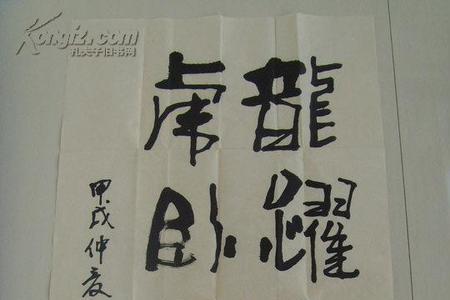 龍躍
虎卧
甲戌仲夏
Kongfz.com
孔夫子旧书网